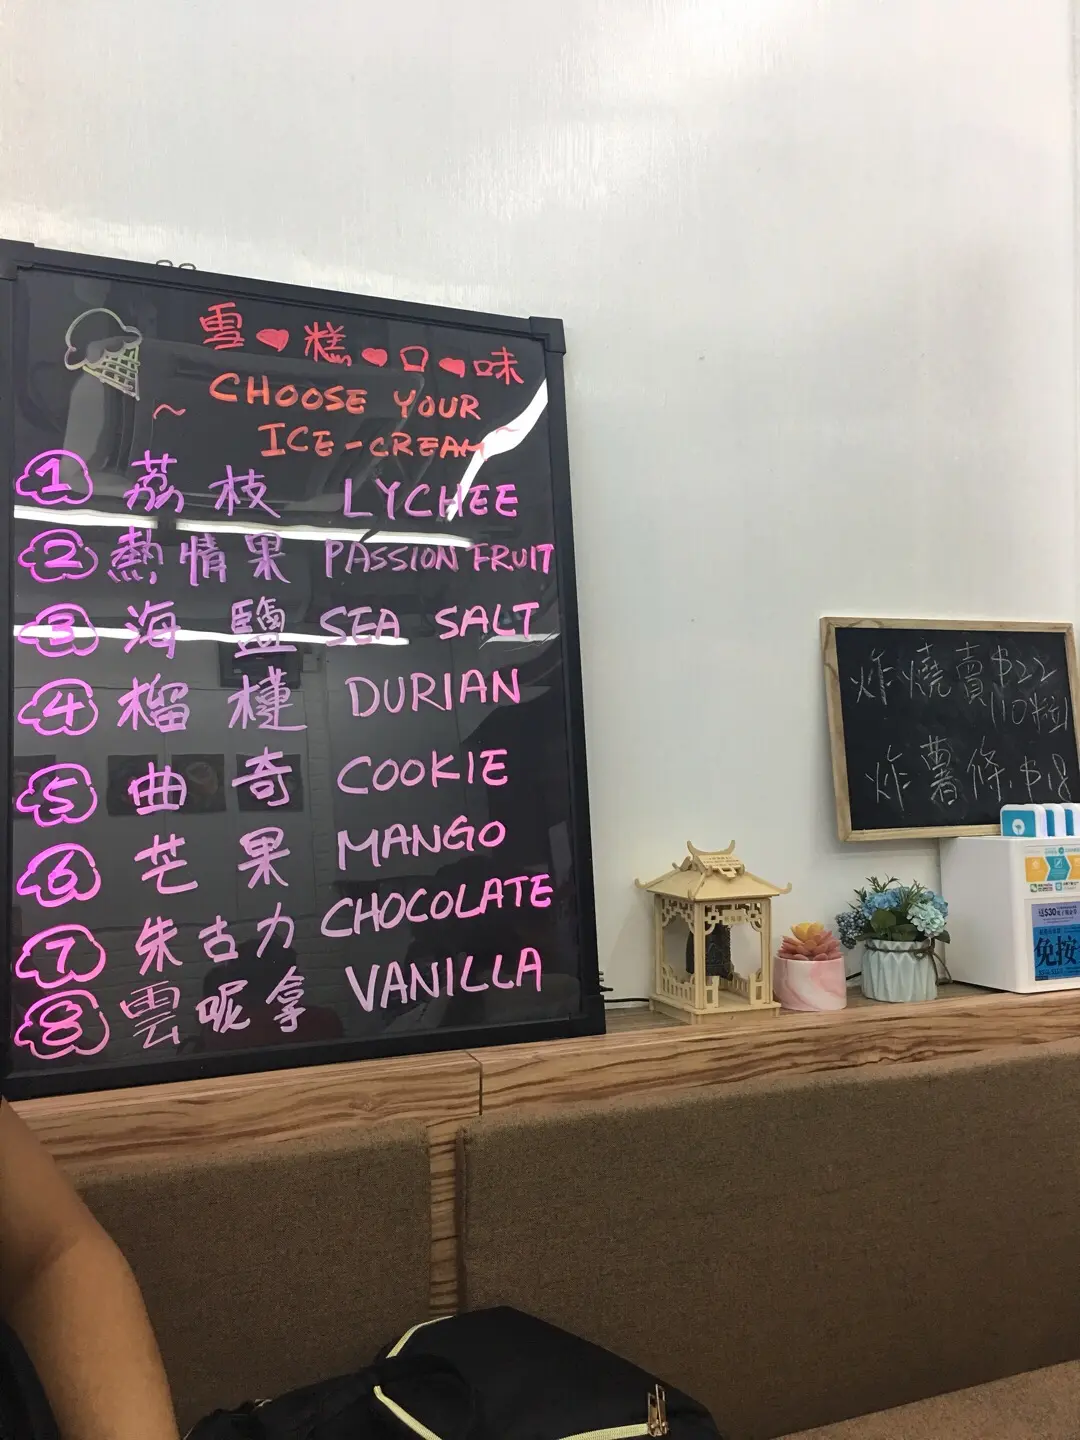 雪糕口味
~ CHOOSE YOUR
ICE-CREAM ~
1 荔枝 LYCHEE
2 熱情果 PASSION FRUIT
3 海鹽 SEA SALT
4 榴槤 DURIAN
5 曲奇 COOKIE
6 芒果 MANGO
7 朱古力 CHOCOLATE
8 雲呢拿 VANILLA
炸燒賣$22
(10粒)
炸薯條$18
送$30
免按